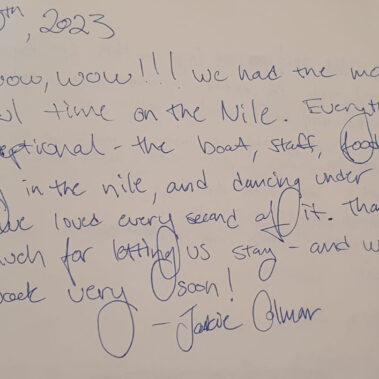 th, 2023
wow, wow!!! we had the mo
ul time on the Nile. Everyth
eptional - the boat, staff, food
in the nile, and dancing under
we loves every second of it. Than
much for letting us stay - and w
back very soon!
- Jackie Colman